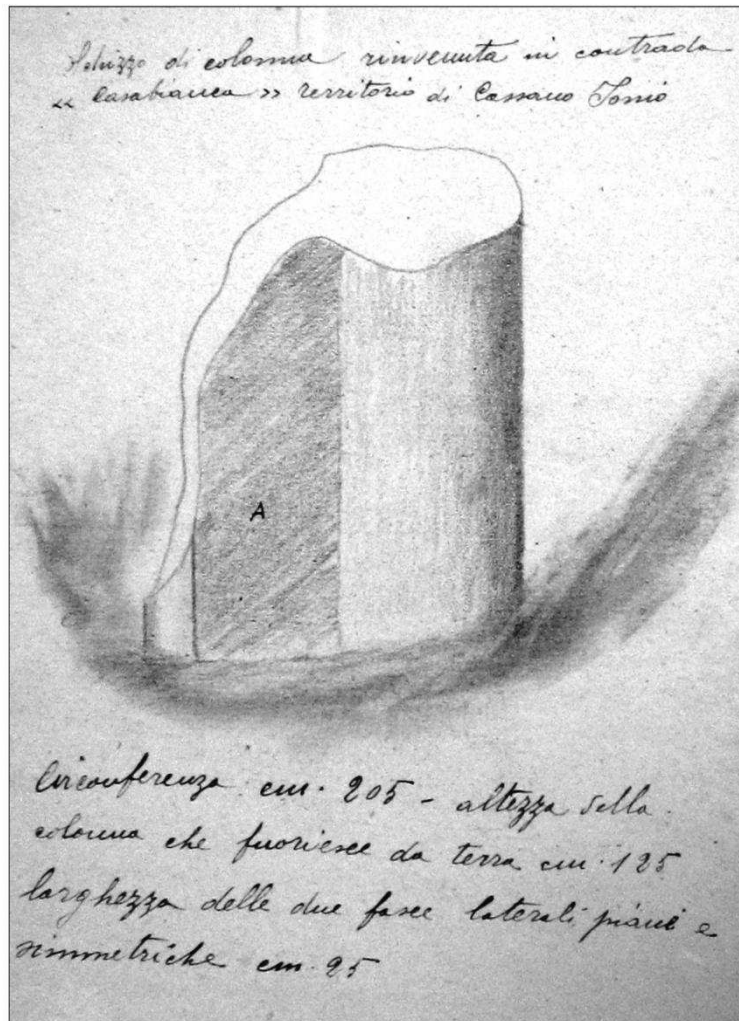 Schizzo di colonna rinvenuta in contrada
« Casabianca » territorio di Cassano Jonio
A
Circonferenza cm. 205 - altezza della
colonna che fuoriesce da terra cm. 125
larghezza delle due fasce laterali piane e
simmetriche cm. 25